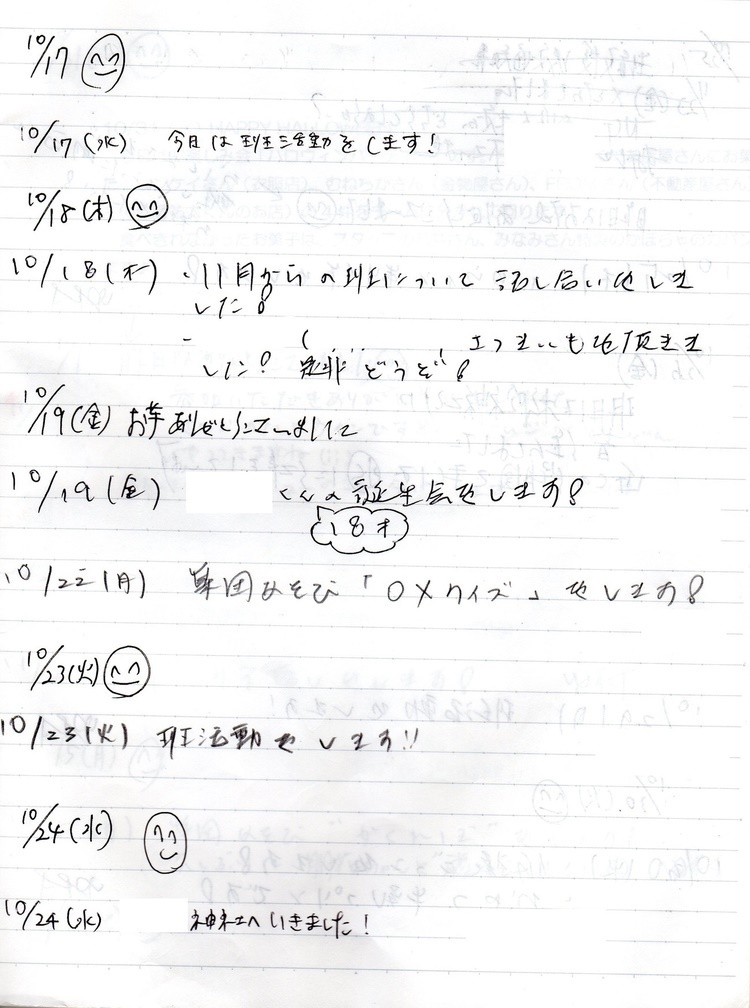 10/17
10/17 (水) 今日は班活動をします!
10/18 (木)
10/18 (木) ・11月からの班について話し合いをしま
した!
- さつまいもを頂きま
した! 是非どうぞ!
10/19 (金) お芋ありがとうございました
10/19 (金) くんの誕生会をします!
18才
10/22 (月) 集団あそび「○×クイズ」をします!
10/23 (火)
10/23 (火) 班活動をします!!
10/24 (水)
10/24 (水) 神社へいきました!